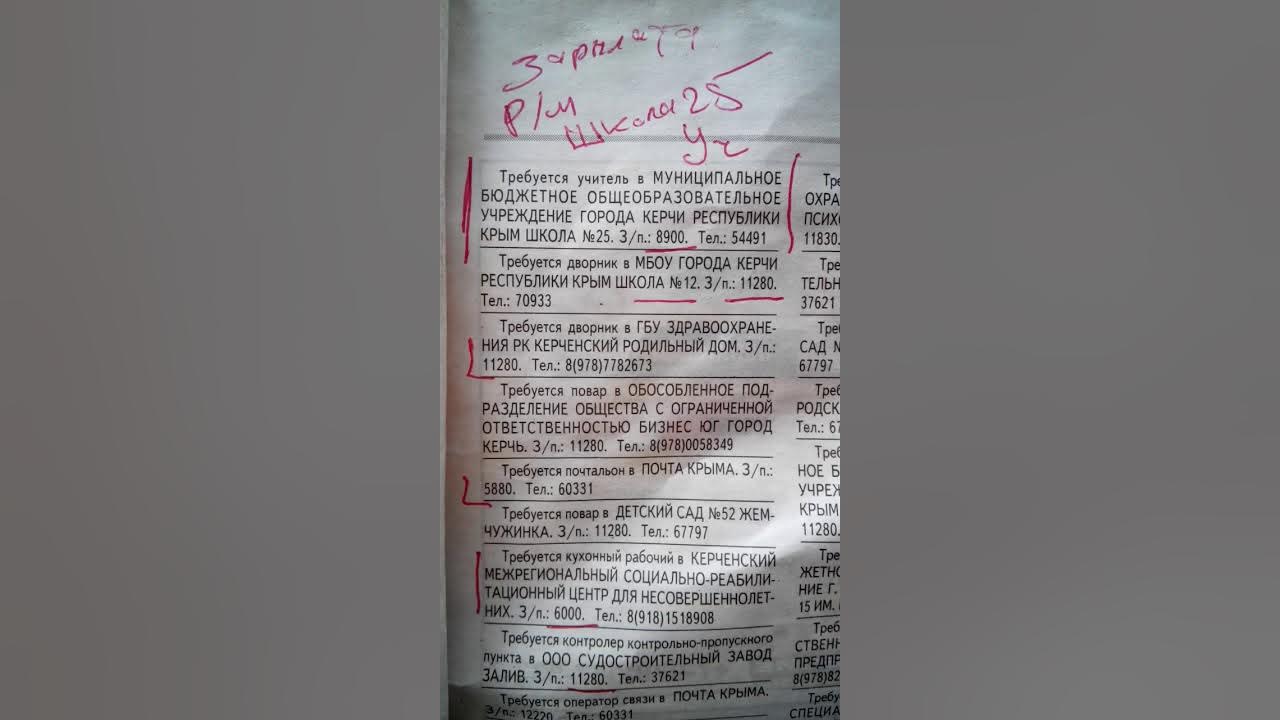 Зарплата
Р/м Школа 25
Уч
Требуется учитель в МУНИЦИПАЛЬНОЕ
БЮДЖЕТНОЕ ОБЩЕОБРАЗОВАТЕЛЬНОЕ
УЧРЕЖДЕНИЕ ГОРОДА КЕРЧИ РЕСПУБЛИКИ
КРЫМ ШКОЛА №25. З/п.: 8900. Тел.: 54491
Требуется дворник в МБОУ ГОРОДА КЕРЧИ
РЕСПУБЛИКИ КРЫМ ШКОЛА №12. З/п.: 11280.
Тел.: 70933
Требуется дворник в ГБУ ЗДРАВООХРАНЕ-
НИЯ РК КЕРЧЕНСКИЙ РОДИЛЬНЫЙ ДОМ. З/п.:
11280. Тел.: 8(978)7782673
Требуется повар в ОБОСОБЛЕННОЕ ПОД-
РАЗДЕЛЕНИЕ ОБЩЕСТВА С ОГРАНИЧЕННОЙ
ОТВЕТСТВЕННОСТЬЮ БИЗНЕС ЮГ ГОРОД
КЕРЧЬ. З/п.: 11280. Тел.: 8(978)0058349
Требуется почтальон в ПОЧТА КРЫМА. З/п.:
5880. Тел.: 60331
Требуется повар в ДЕТСКИЙ САД №52 ЖЕМ-
ЧУЖИНКА. З/п.: 11280. Тел.: 67797
Требуется кухонный рабочий в КЕРЧЕНСКИЙ
МЕЖРЕГИОНАЛЬНЫЙ СОЦИАЛЬНО-РЕАБИЛИ-
ТАЦИОННЫЙ ЦЕНТР ДЛЯ НЕСОВЕРШЕННОЛЕТ-
НИХ. З/п.: 6000. Тел.: 8(918)1518908
Требуется контролер контрольно-пропускного
пункта в ООО СУДОСТРОИТЕЛЬНЫЙ ЗАВОД
ЗАЛИВ. З/п.: 11280. Тел.: 37621
Требуется оператор связи в ПОЧТА КРЫМА.
З/п.: 12220. Тел.: 60331
Тре
ОХРА
ПСИХО
11830.
Тре
ТЕЛЬН
37621
Треб
САД №
67797
Треб
РОДСК
Тел.: 67
Треб
НОЕ Б
УЧРЕЖ
КРЫМ
11280.
Тре
ЖЕТНО
НИЕ Г.
15 ИМ.
Треб
СТВЕНН
ПРЕДПР
8(978)82
Требу
СПЕЦИА